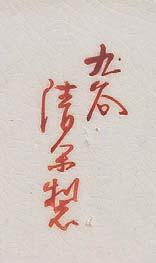 九谷
清泉製